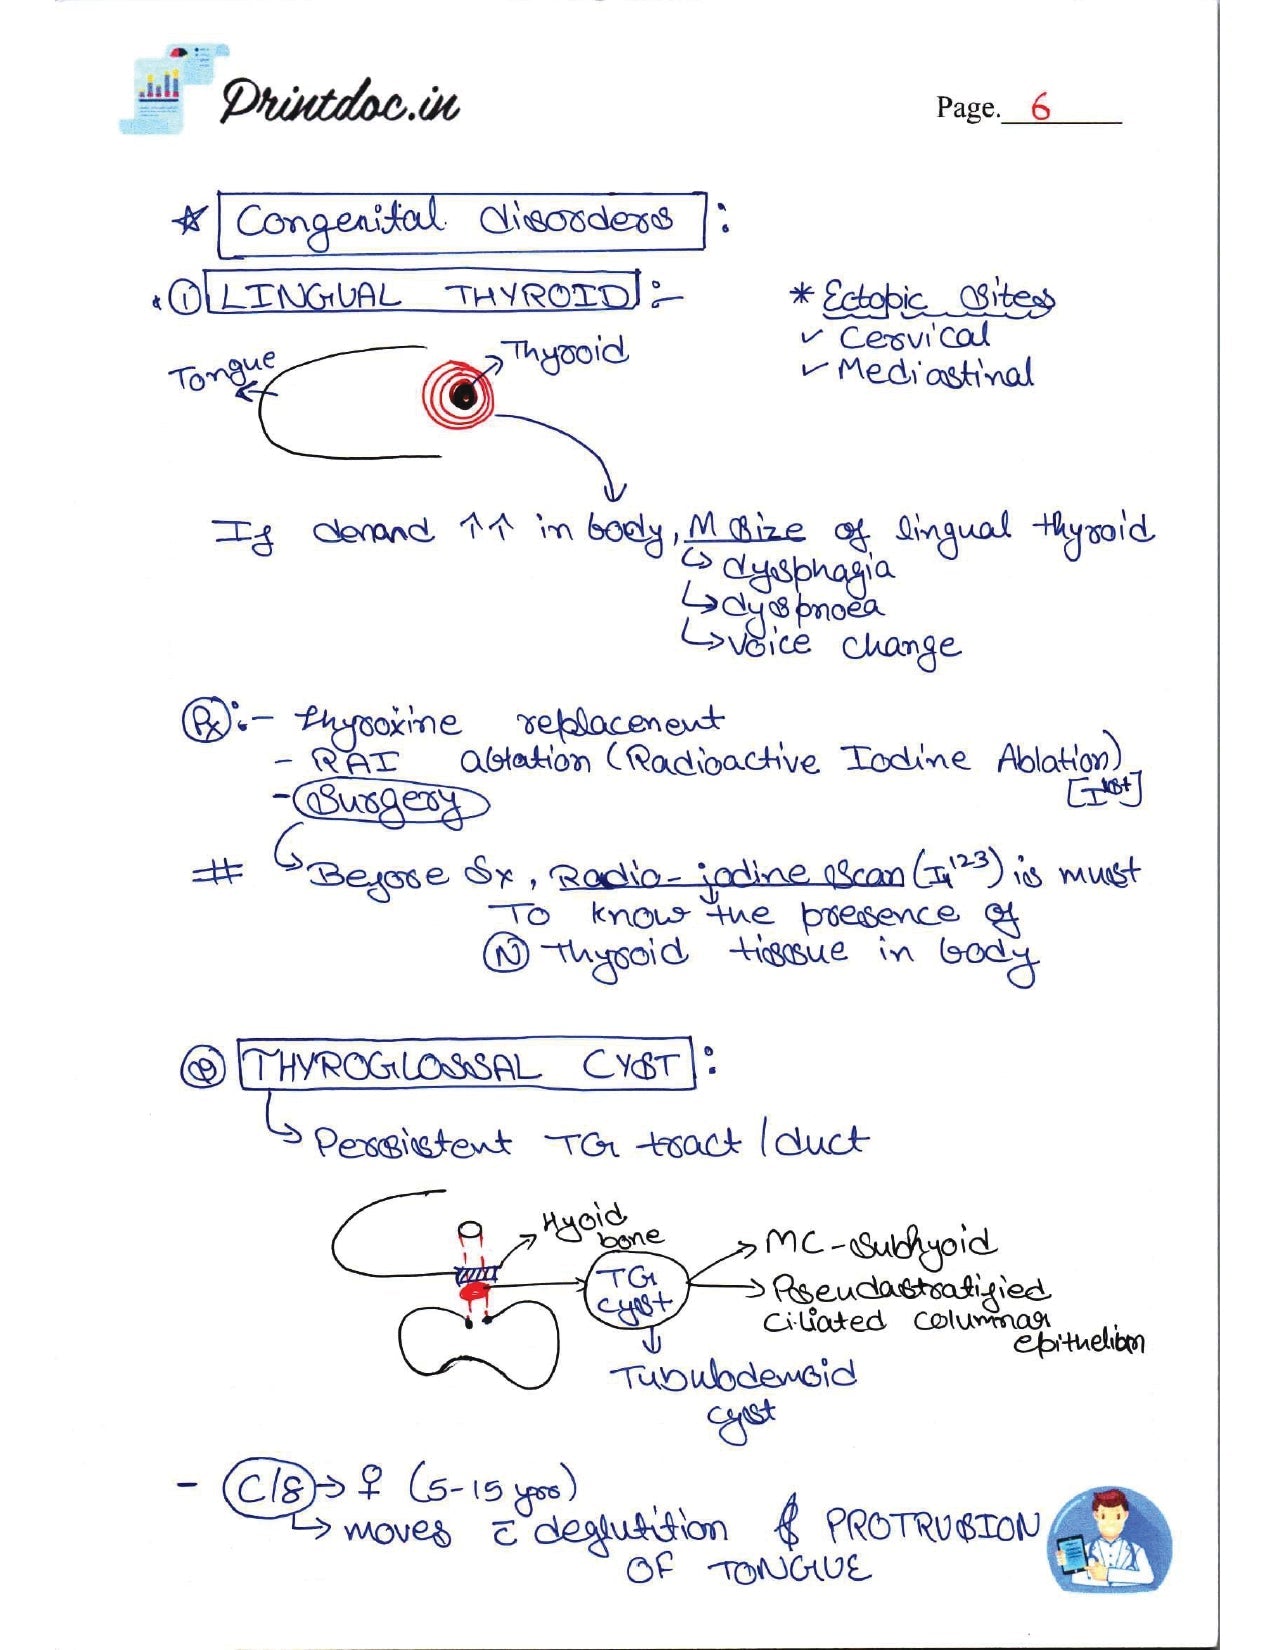 Printdoc.in
Page. 6
* Congenital disorders :
* ① LINGUAL THYROID :-
* Ectopic Sites
✓ Cervical
✓ Mediastinal
Tongue
Thyroid
If demand ↑↑ in body, M size of lingual thyroid
↳ dysphagia
↳ dyspnoea
↳ voice change
Rx :- thyroxine replacement
- RAI ablation (Radioactive Iodine Ablation)
- Surgery
# ↳ Before Sx, Radio-iodine scan (I¹²³) is must
To know the presence of
Ⓝ Thyroid tissue in body
② THYROGLOSSAL CYST :
↳ Persistent TG tract / duct
Hyoid
bone
TG
cyst
→ MC - Subhyoid
→ Pseudostratified
ciliated columnar
epithelium
Tubulodermoid
cyst
- C/S → ♀ (5-15 yrs)
↳ moves c̄ deglutition & PROTRUSION
OF TONGUE